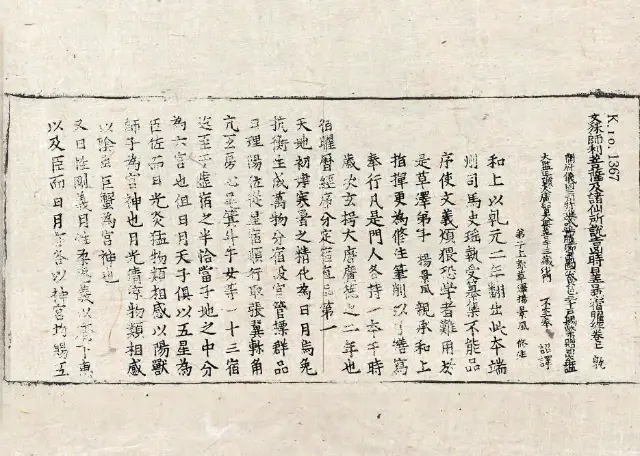 K.10.1367
文殊師利菩薩及諸仙所說吉凶時日善惡宿曜經卷上
開府儀同三司特進試鴻臚卿肅國公食邑三千戶賜紫贈司空謚
大鑑正號大廣智大興善寺三藏沙門 不空奉 詔譯
弟子上都草澤楊景風修注
和上以乾元二年翻出此本端
州司馬史瑤執受纂集不能品
序使文義煩猥恐學者難用於
是草澤弟子楊景風親承和上
指揮更為修注筆削以了繕寫
奉行凡是門人各持一本于時
歲次玄枵大唐廣德之二年也
宿曜曆經序分定宿直品第一
天地初建寒暑之精化為日月烏兔
抗衡生成萬物分宿設宮管標群品
日理陽位從星宿順行取張翼軫角
亢氐房心尾箕斗牛女等一十三宿
迄至于虛宿之半恰當子地之中分
為六宮也但日月天子俱以五星為
臣佐而日光炎猛物類相感以陽獸
師子為宮神也月光清涼物類相感
以陰虫巨蟹為宮神也
又日性剛義月性柔惠義以濟下惠
以及臣而日月亦各以神宮均賜五